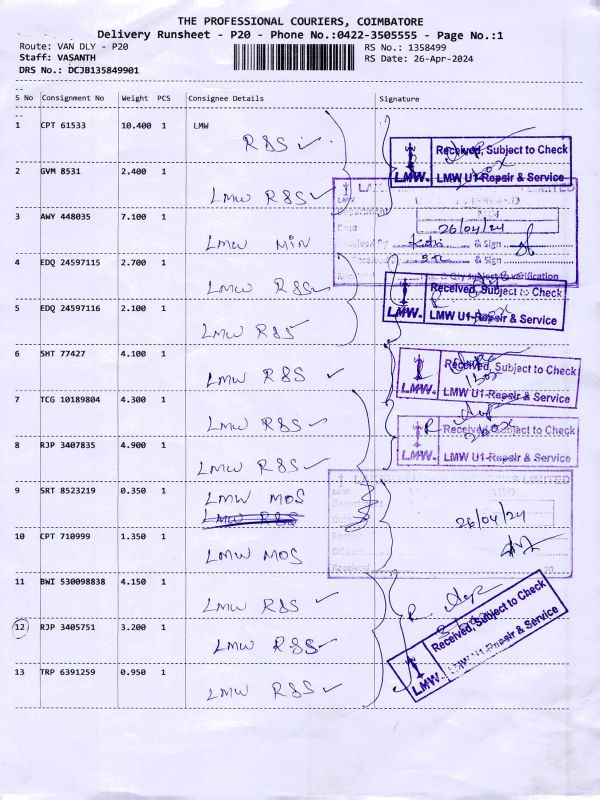 THE PROFESSIONAL COURIERS, COIMBATORE
Delivery Runsheet - P20 - Phone No.:0422-3505555 - Page No.:1
Route: VAN DLY - P20
RS No.: 1358499
Staff: VASANTH
RS Date: 26-Apr-2024
DRS No.: DCJB135849901
S No Consignment No Weight PCS Consignee Details Signature
1 CPT 61533 10.400 1 LMW
R&S ✓
Received, Subject to Check
LMW. LMW U1-Repair & Service
2 GVM 8531 2.400 1
LMW R&S ✓
3 AWY 448035 7.100 1
Date 26/04/24
LMW MIN
& Sign
4 EDQ 24597115 2.700 1
& Sign
LMW R&S
Received, Subject to Check
5 EDQ 24597116 2.100 1
LMW. LMW U1-Repair & Service
LMW R&S ✓
6 SHT 77427 4.100 1
Received, Subject to Check
LMW R&S ✓
LMW. LMW U1-Repair & Service
7 TCG 10189804 4.300 1
LMW R&S ✓
R
Received, Subject to Check
8 RJP 3407835 4.900 1
LMW. LMW U1-Repair & Service
LMW R&S ✓
9 SRT 8523219 0.350 1
LMW MOS
LMW R&S
26/04/24
10 CPT 710999 1.350 1
LMW MOS
11 BWI 530098838 4.150 1
LMW R&S ✓
R
Received, Subject to Check
12 RJP 3405751 3.200 1
LMW R&S ✓
LMW. LMW U1-Repair & Service
13 TRP 6391259 0.950 1
LMW R&S ✓